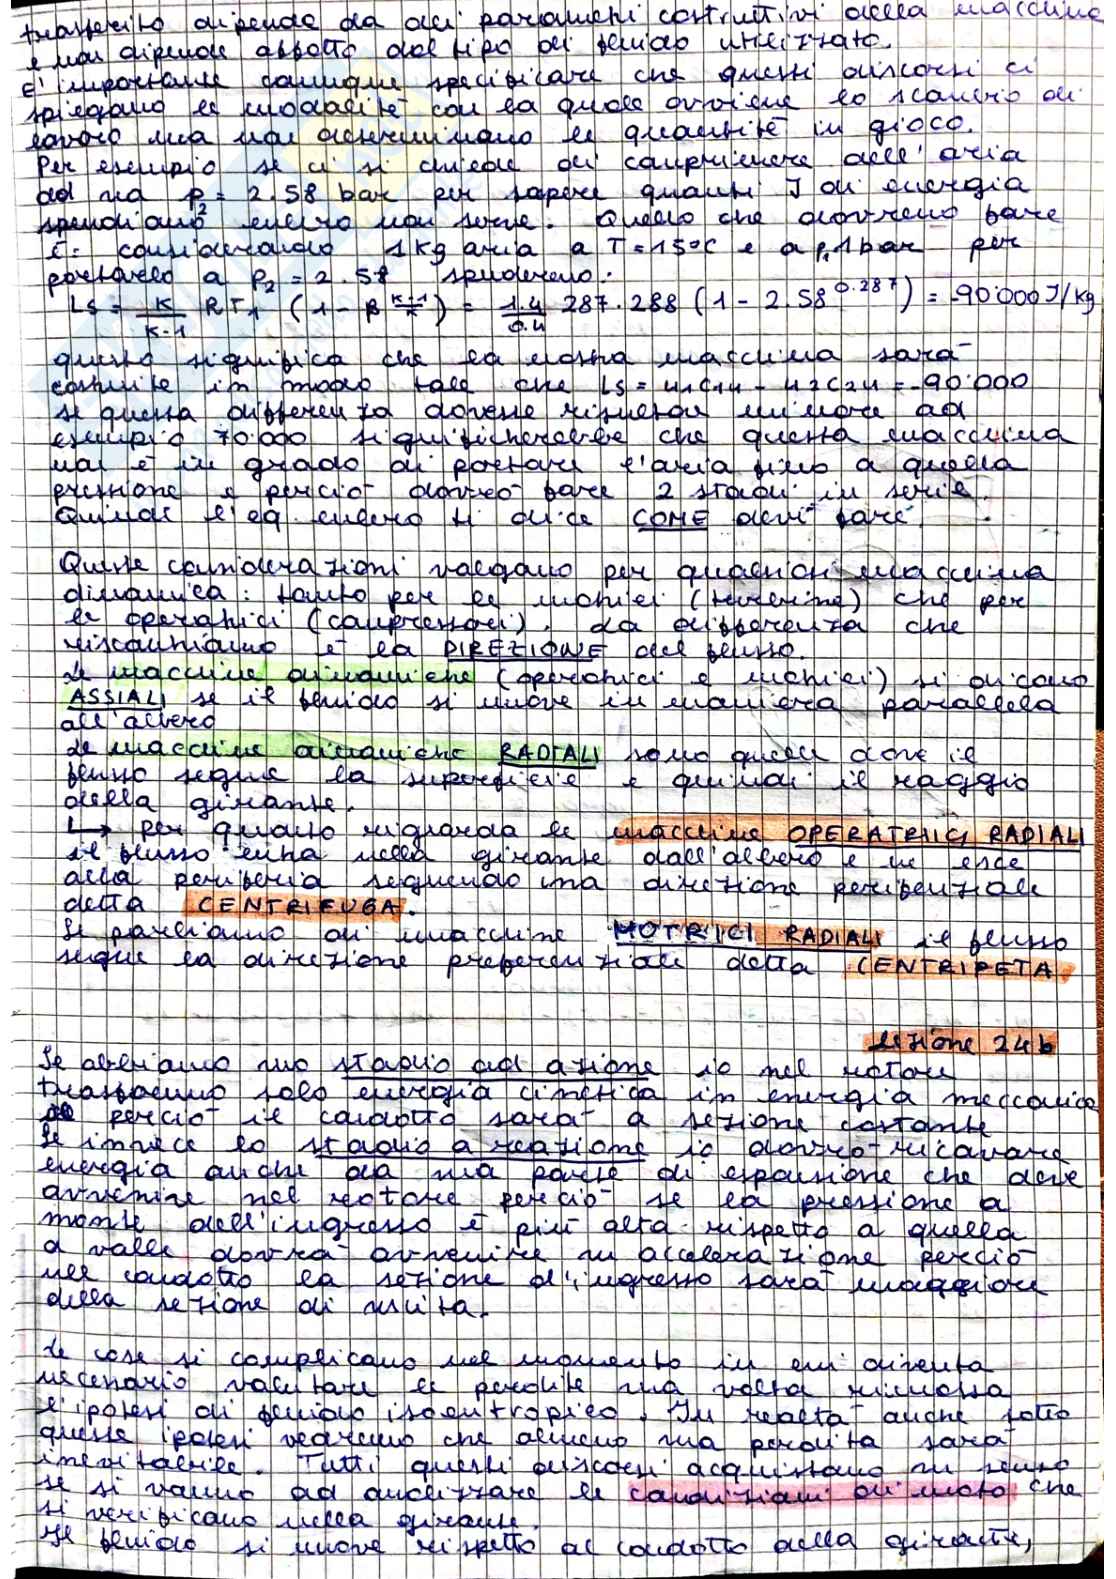 trasferito dipende da dei parametri costruttivi della macchina
e non dipende affatto dal tipo di fluido utilizzato.
E' importante comunque specificare che questi discorsi ci
spiegano le modalità con la quale avviene lo scambio di
lavoro ma non determinano le quantità in gioco.
Per esempio se ci si chiede di comprimere dell'aria
ad una p2 = 2.58 bar per sapere quanti J di energia
spendiamo eulero non serve. Quello che dovremo fare
è: considerando 1kg aria a T=15°C e a p1 1bar per
portarlo a P2 = 2.58 spenderemo:
Ls = K/K-1 R T1 (1 - β^K-1/K) = 1.4/0.4 287·288 (1 - 2.58^0.287) = -90'000 J/kg
questo significa che la nostra macchina sarà
costruita in modo tale che Ls = u1c1u - u2c2u = -90'000
se questa differenza dovesse risultare minore ad
esempio 70'000 significherebbe che questa macchina
non è in grado di portare l'aria fino a quella
pressione e perciò dovrò fare 2 stadi in serie.
Quindi l'eq. eulero ti dice COME devi fare.
Queste considerazioni valgono per qualsiasi macchina
dinamica: tanto per le motrici (turbine) che per
le operatrici (compressori). La differenza che
riscontriamo è la DIREZIONE del flusso.
Le macchine dinamiche (operatrici e motrici) si dicono
ASSIALI se il fluido si muove in maniera parallela
all'albero
Le macchine dinamiche RADIALI sono quelle dove il
flusso segue la superficie e quindi il raggio
della girante.
↳ per quanto riguarda le macchine OPERATRICI RADIALI
il flusso entra nella girante dall'albero e ne esce
alla periferia seguendo una direzione periferiale
detta CENTRIFUGA.
Se parliamo di macchine MOTRICI RADIALI il flusso
segue la direzione preferenziale detta CENTRIPETA
Lezione 24b
Se abbiamo uno stadio ad azione io nel rotore
trasformo solo energia cinetica in energia meccanica
perciò il condotto sarà a sezione costante
Se invece lo stadio a reazione io dovrò ricavare
energia anche da una parte di espansione che deve
avvenire nel rotore perciò se la pressione a
monte dell'ingresso è più alta rispetto a quella
a valle dovrà avvenire un accelerazione perciò
nel condotto la sezione d'ingresso sarà maggiore
della sezione di uscita.
Le cose si complicano nel momento in cui diventa
necessario valutare le perdite una volta rimossa
l'ipotesi di fluido isoentropico. In realtà anche sotto
queste ipotesi vedremo che almeno una perdita sarà
inevitabile. Tutti questi discorsi acquistano un senso
se si vanno ad analizzare le condizioni di moto che
si verificano nella girante.
Il fluido si muove rispetto al condotto della girante,